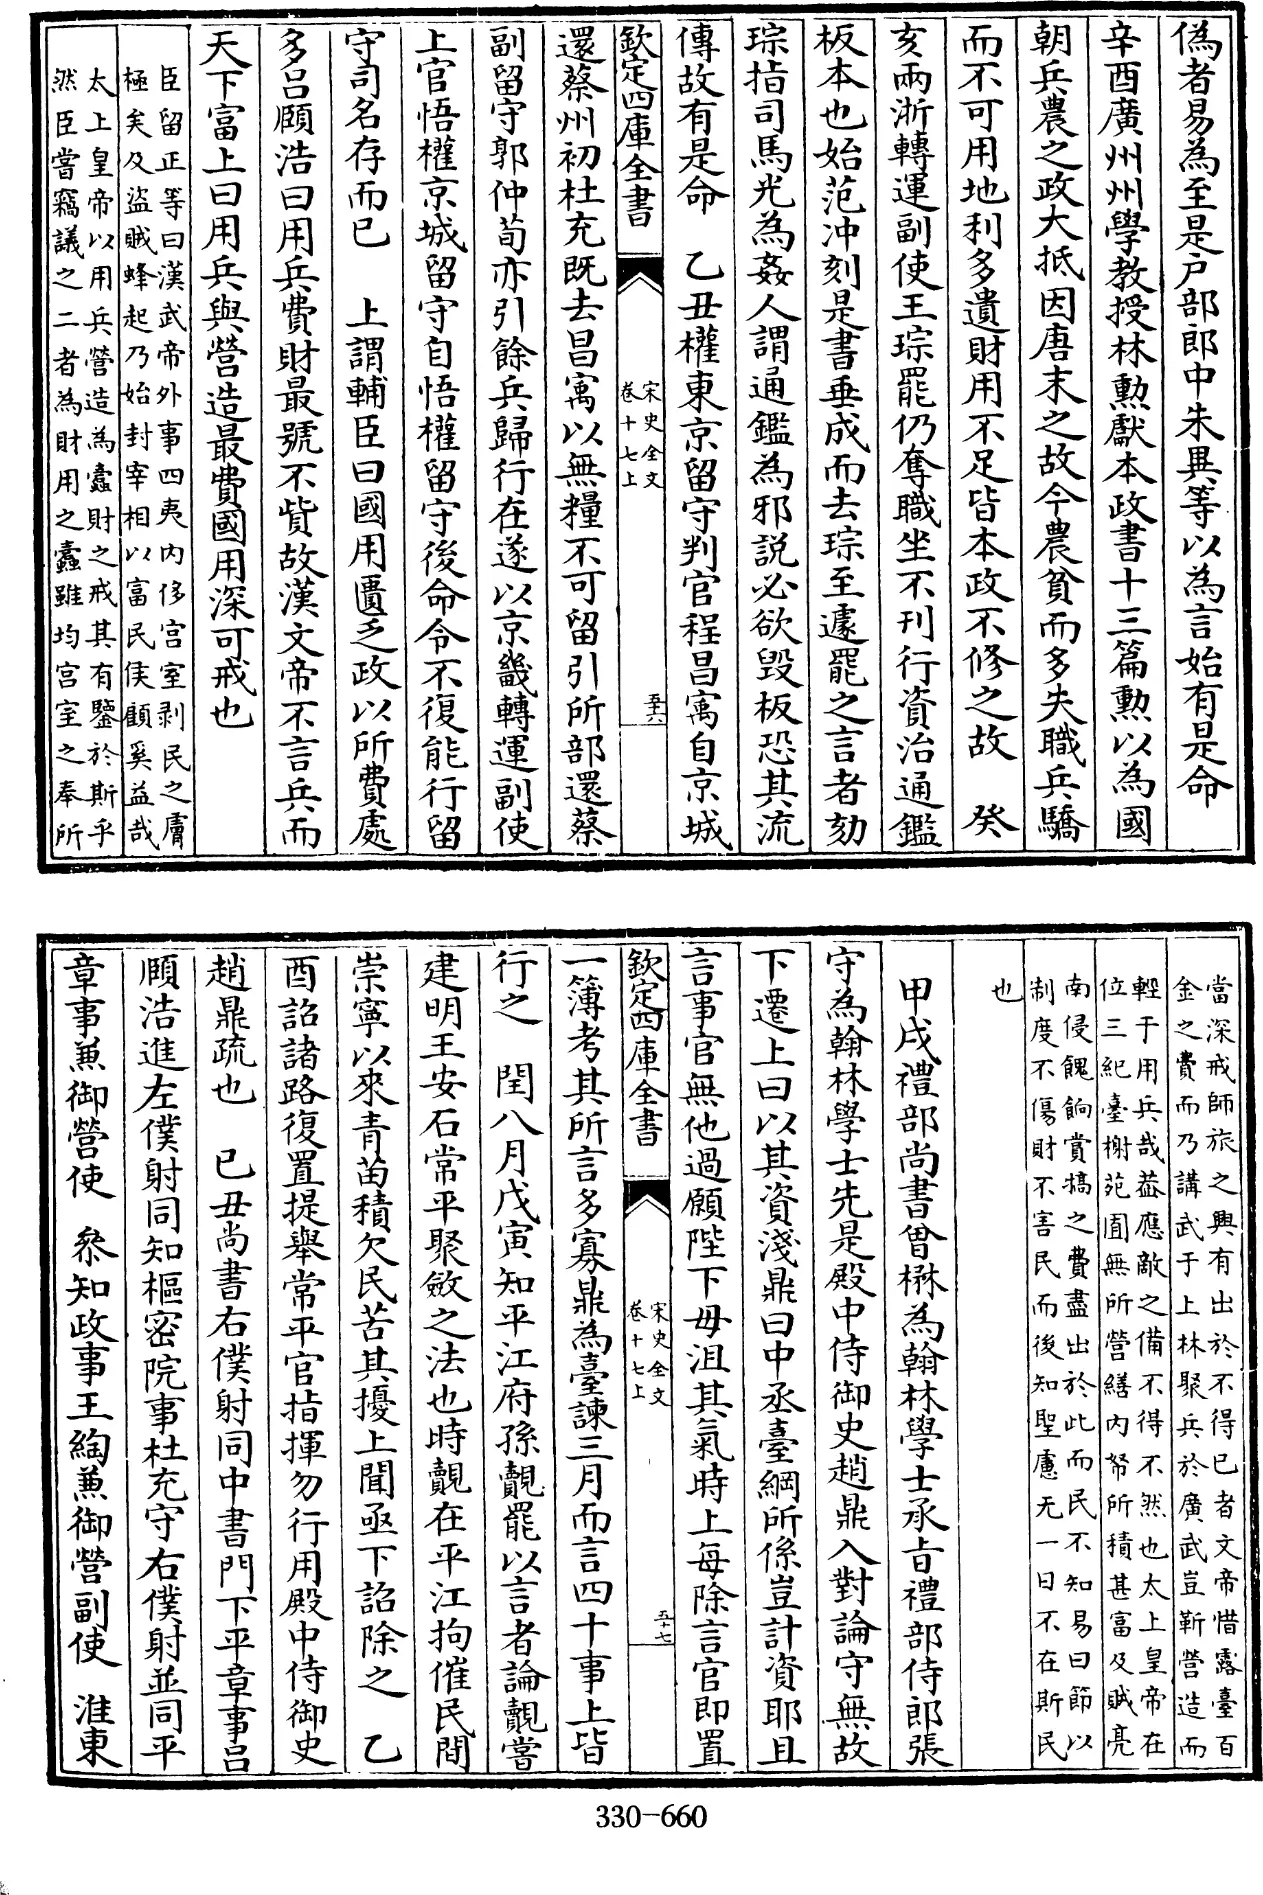 偽者易為至是戸部郎中朱異等以為言始有是命
辛酉廣州州學教授林勲獻本政書十三篇勲以為國
朝兵農之政大抵因唐末之故今農貧而多失職兵驕
而不可用地利多遺財用不足皆本政不修之故　癸
亥兩浙轉運副使王琮罷仍奪職坐不刊行資治通鑑
板本也始范冲刻是書垂成而去琮至遽罷之言者劾
琮指司馬光為姦人謂通鑑為邪説必欲毁板恐其流
傳故有是命　乙丑權東京留守判官程昌㝢自京城
欽定四庫全書
宋史全文
卷十七上
五十六
還蔡州初杜充既去昌㝢以無糧不可留引所部還蔡
副留守郭仲荀亦引餘兵歸行在遂以京畿轉運副使
上官悟權京城留守自悟權留守後命令不復能行留
守司名存而已　上謂輔臣曰國用匱乏政以所費處
多吕頤浩曰用兵費財最號不貲故漢文帝不言兵而
天下富上曰用兵與營造最費國用深可戒也
臣留正等曰漢武帝外事四夷内侈宫室剥民之膚
極矣及盜賊蜂起乃始封宰相以富民侯顧奚益哉
太上皇帝以用兵營造為蠧財之戒其有鑒於斯乎
然臣嘗竊議之二者為財用之蠧雖均宫室之奉所
當深戒師旅之興有出於不得已者文帝惜露臺百
金之費而乃講武于上林聚兵於廣武豈靳營造而
輕于用兵哉葢應敵之備不得不然也太上皇帝在
位三紀臺榭苑囿無所營繕内帑所積甚富及賊亮
南侵餽餉賞犒之費盡出於此而民不知易曰節以
制度不傷財不害民而後知聖慮无一日不在斯民
也
甲戌禮部尚書曾楙為翰林學士承旨禮部侍郎張
守為翰林學士先是殿中侍御史趙鼎入對論守無故
下遷上曰以其資淺鼎曰中丞臺綱所係豈計資耶且
言事官無他過願陛下毋沮其氣時上每除言官即置
一簿考其所言多寡鼎為臺諫三月而言四十事上皆
欽定四庫全書
宋史全文
卷十七上
五十七
行之　閏八月戊寅知平江府孫覿罷以言者論覿嘗
建明王安石常平聚斂之法也時覿在平江拘催民間
崇寧以來青苗積欠民苦其擾上聞亟下詔除之　乙
酉詔諸路復置提舉常平官指揮勿行用殿中侍御史
趙鼎疏也　已丑尚書右僕射同中書門下平章事吕
頤浩進左僕射同知樞密院事杜充守右僕射並同平
章事兼御營使　叅知政事王綯兼御營副使　淮東
330-660